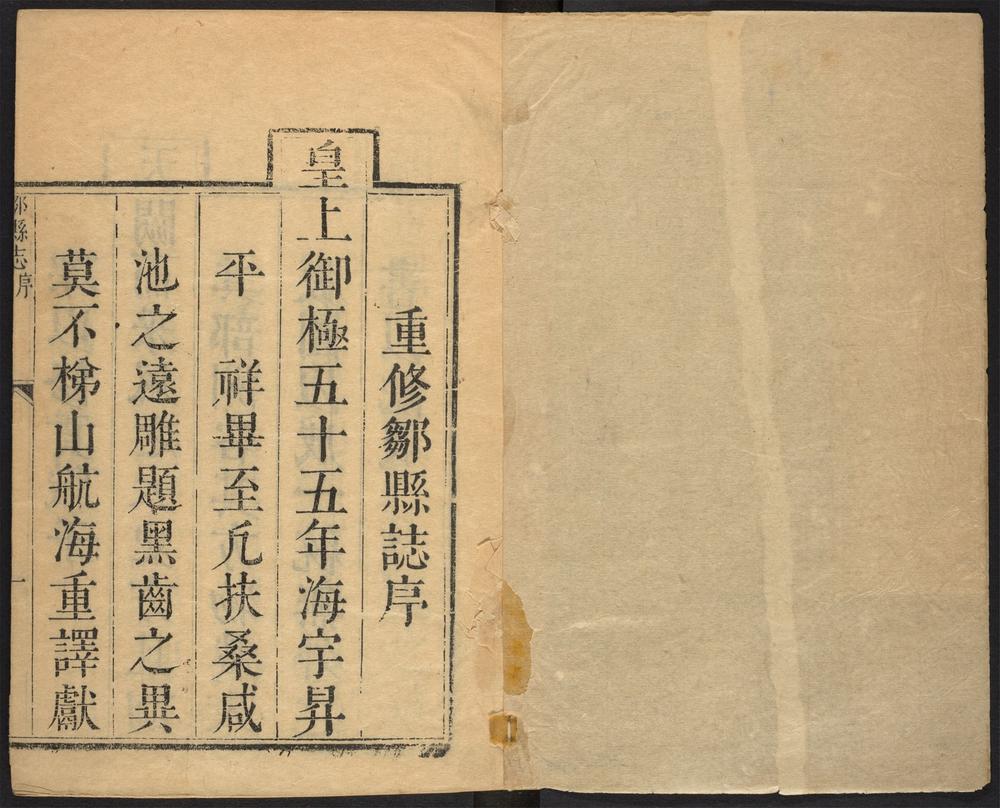 重修鄒縣誌序
皇上御極五十五年海宇昇
平　祥畢至凢扶桑咸
池之遠雕題黑齒之異
莫不梯山航海重譯獻
鄒縣志序
一